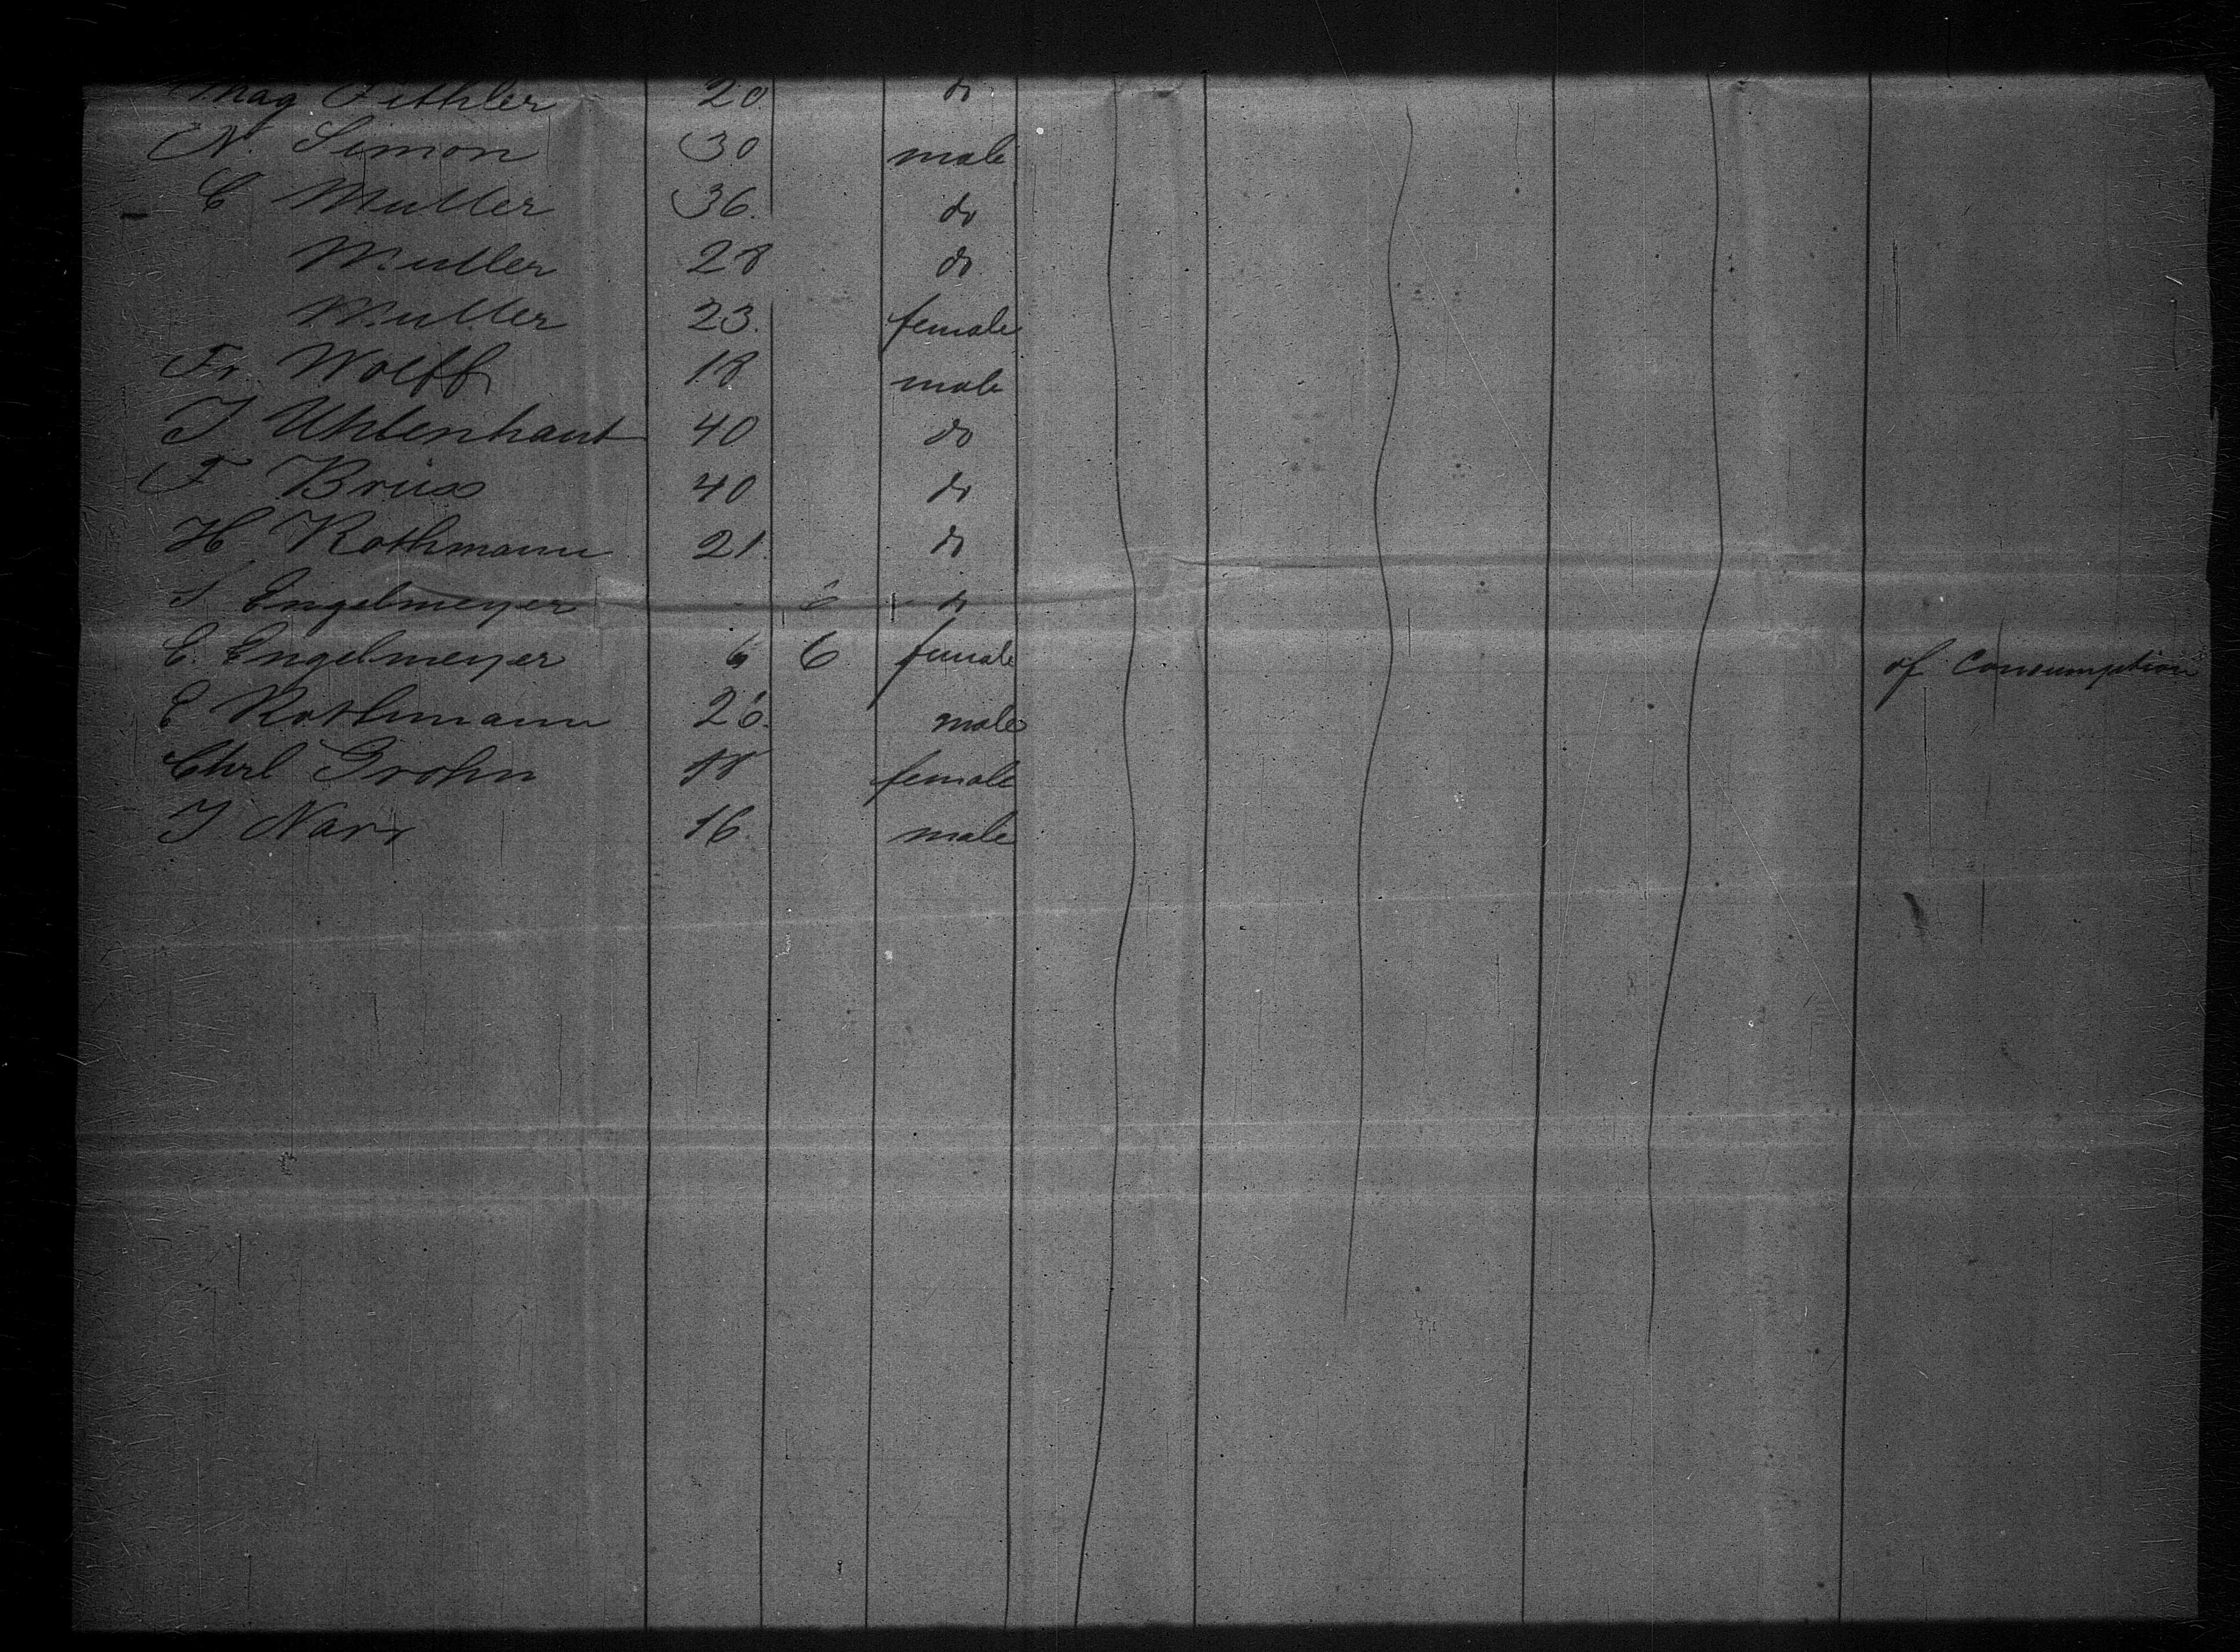 Mag Fithler 20. do
N. Simon 30 male
C Muller 36. do
Muller 28 do
Muller 23. female
Fr. Wolff 18 male
J Uhlenhaut 40 do
F Brüss 40 do
H Rothmann 21. do
S Engelmeyer 6 do
E. Engelmeyer 6 6 female of Consumption
E Rothmann 26. male
Chrl Grohn 18 female
J Narx 16. male